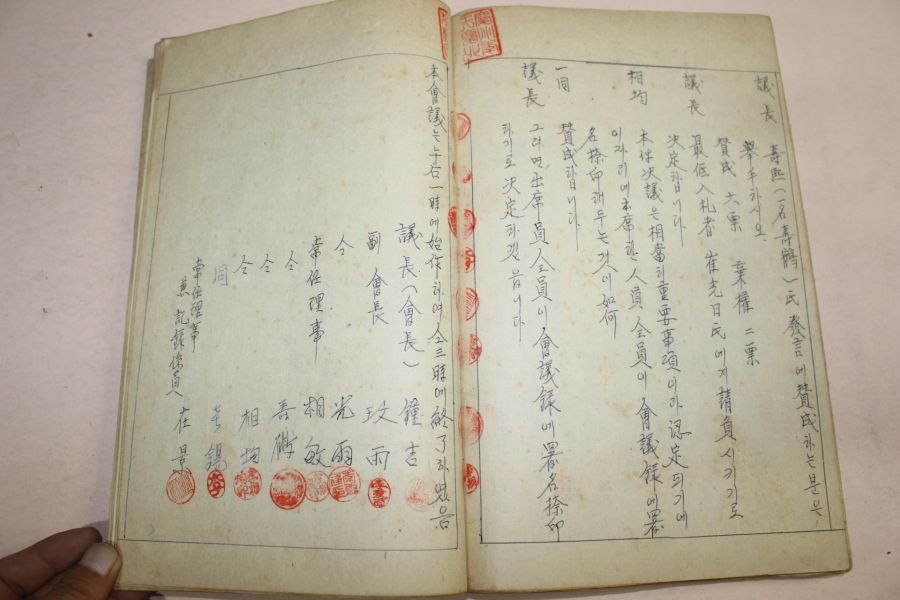 議長 壽熙(一名壽鶴)氏 發言에 贊成하는 분은
擧手하시오
贊成 六票 棄權 二票
議長 最低入札者 崔光日氏에게 請負시키기로
決定합니다
相均 本件決議은 相當히 重要事項이라 認定되기에
이자리에 出席한 人員 全員이 會議錄에 署
名捺印해두는 것이 如何
一同 贊成합니다
議長 그러면 出席員 全員이 會議錄에 署名捺印
하기로 決定하겠읍니다
本會議는 下午 一時에 始作하여 仝三時에 終了하였음
議長(會長) 鐘吉
副會長 玟雨
仝 光雨
常任理事 相敏
仝
仝 相均
同 錫
常任理事
兼 記錄係員 在景